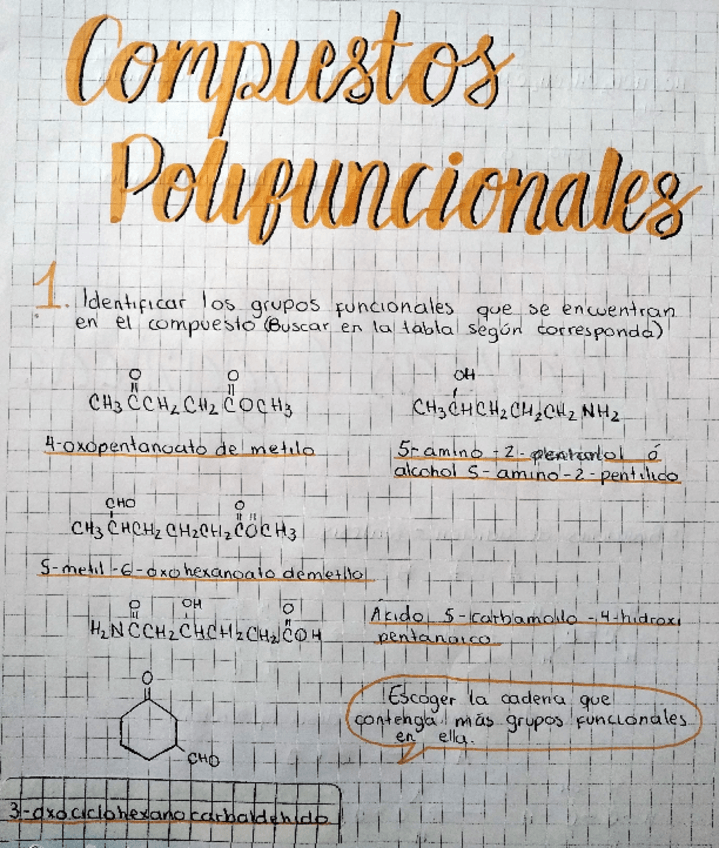 Compuestos
Polifuncionales
1. Identificar los grupos funcionales que se encuentran
en el compuesto (Buscar en la tabla según corresponda)
O O
CH3CCH2CH2COCH3
4-oxopentanoato de metilo
OH
CH3CHCH2CH2CH2NH2
5-amino-2-pentanol ó
alcohol 5-amino-2-pentilico
CHO O
CH3CHCH2CH2CH2COCH3
5-metil-6-oxohexanoato demetilo
O OH O
H2NCCH2CHCH2CH2COH
Ácido 5-carbamoilo-4-hidroxi
pentanoico
O
CHO
3-oxociclohexanocarbaldehido
Escoger la cadena que
contenga más grupos funcionales
en ella.